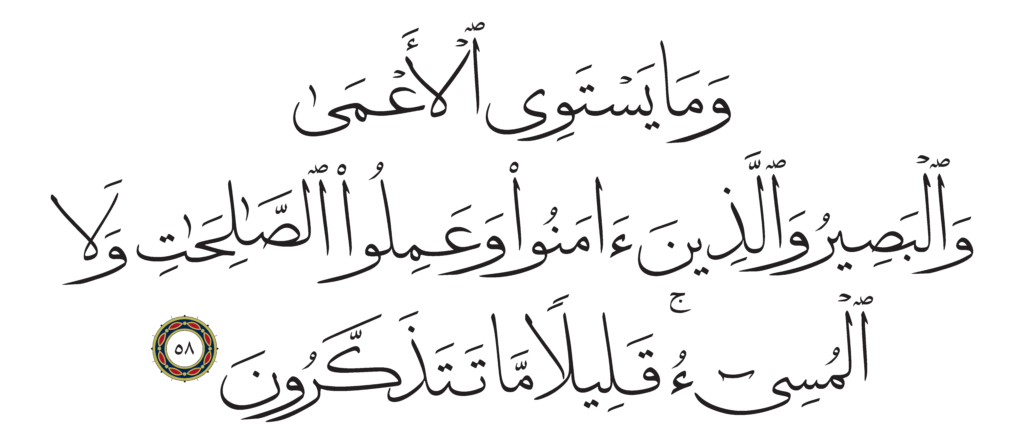 وَمَا يَسْتَوِى ٱلْأَعْمَىٰ
وَٱلْبَصِيرُ وَٱلَّذِينَ ءَامَنُوا۟ وَعَمِلُوا۟ ٱلصَّـٰلِحَـٰتِ وَلَا
ٱلْمُسِىٓءُ ۚ قَلِيلًا مَّا تَتَذَكَّرُونَ ٥٨